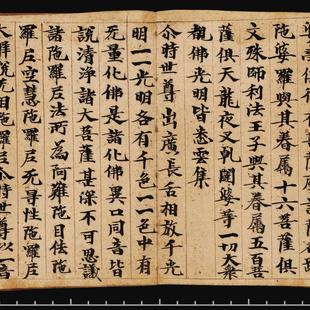 陀婆羅與其眷属十六菩薩俱
文殊師利法王子與其眷属五百菩
薩俱天龍夜叉乹闥婆等一切大衆
覩佛光明皆悉雲集
尒時世尊出廣長舌相放千光
明一一光明各有千色一一色中有
无量化佛是諸化佛異口同音皆
說清淨諸大菩薩甚深不可思議
諸陁羅尼法所為阿難陁目佉陁
羅尼空慧陁羅尼无导性陁羅尼
大解脫无相陁羅尼尒時世尊以一音